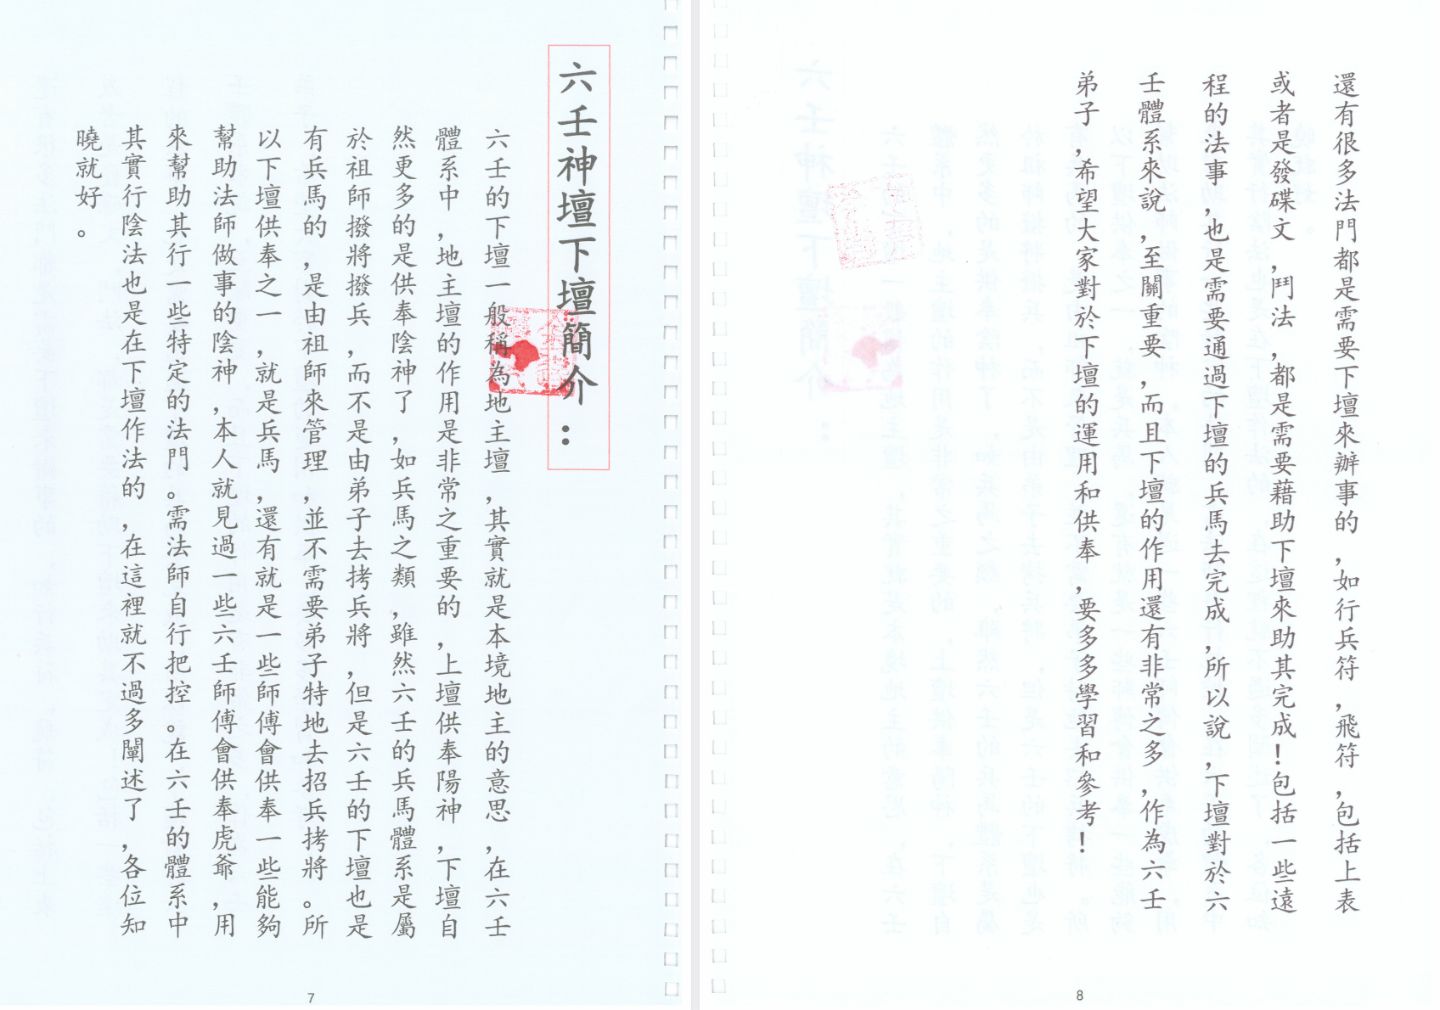 六壬神壇下壇簡介：
六壬的下壇一般稱為地主壇，其實就是本境地主的意思，在六壬
體系中，地主壇的作用是非常之重要的，上壇供奉陽神，下壇自
然更多的是供奉陰神了，如兵馬之類，雖然六壬的兵馬體系是屬
於祖師撥將撥兵，而不是由弟子去拷兵將，但是六壬的下壇也是
有兵馬的，是由祖師來管理，並不需要弟子特地去招兵拷將。所
以下壇供奉之一，就是兵馬，還有就是一些師傅會供奉一些能夠
幫助法師做事的陰神，本人就見過一些六壬師傅會供奉虎爺，用
來幫助其行一些特定的法門。需法師自行把控。在六壬的體系中
其實行陰法也是在下壇作法的，在這裡就不過多闡述了，各位知
曉就好。
7
還有很多法門都是需要下壇來辦事的，如行兵符，飛符，包括上表
或者是發碟文，鬥法，都是需要藉助下壇來助其完成！包括一些遠
程的法事，也是需要通過下壇的兵馬去完成，所以說，下壇對於六
壬體系來說，至關重要，而且下壇的作用還有非常之多，作為六壬
弟子，希望大家對於下壇的運用和供奉，要多多學習和參考！
8